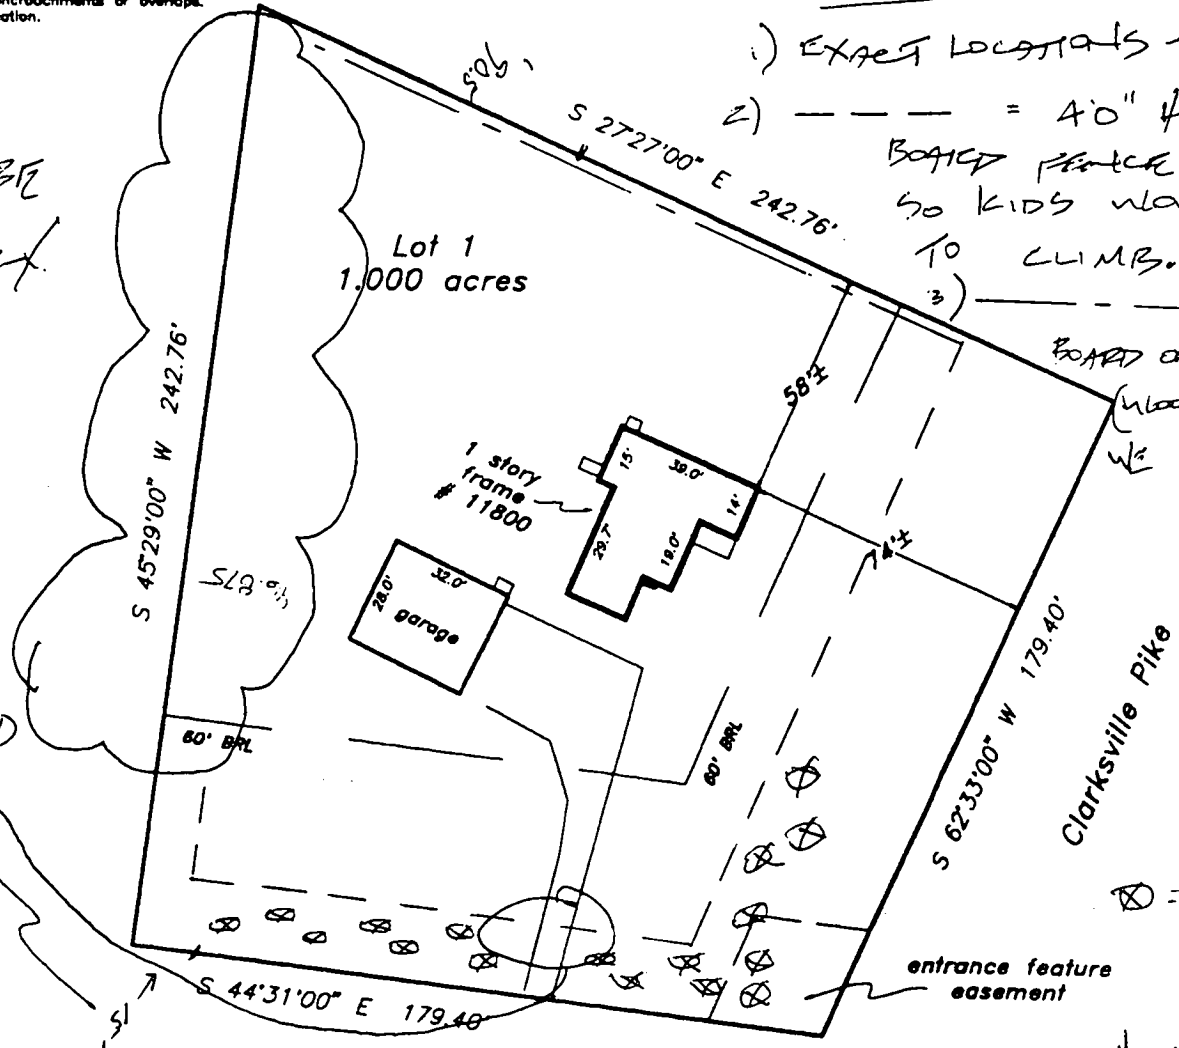 encroachments or overlaps.
ation.
1.) EXACT LOCATIONS
2) — — — = 4'0"
BOARD FENCE
SO KIDS
TO CLIMB.
3)
BOARD
BE
90.5'
S 27°27'00" E 242.76'
Lot 1
1.000 acres
S 45°29'00" W 242.76'
58'±
1 story
frame
# 11800
15'
39.0'
14'
29.7'
19.0'
74'±
32.0'
28.0'
garage
60' BRL
60' BRL
S 62°33'00" W 179.40'
Clarksville Pike
entrance feature
easement
S 44°31'00" E 179.40'